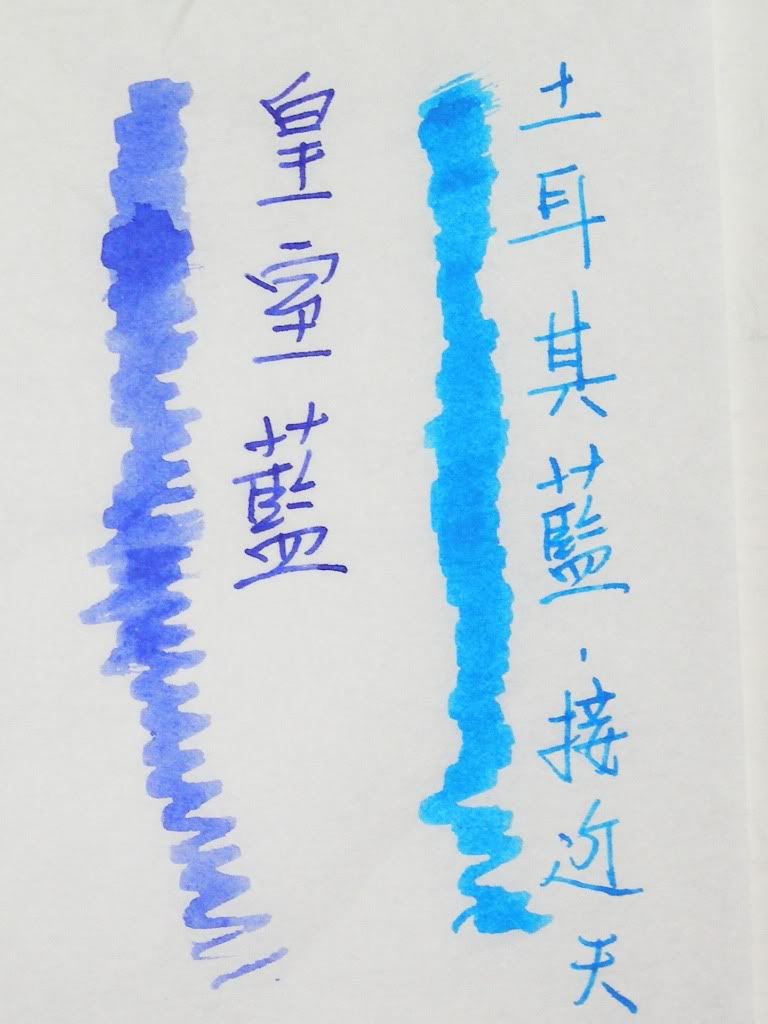 土耳其藍，接近天
皇室藍